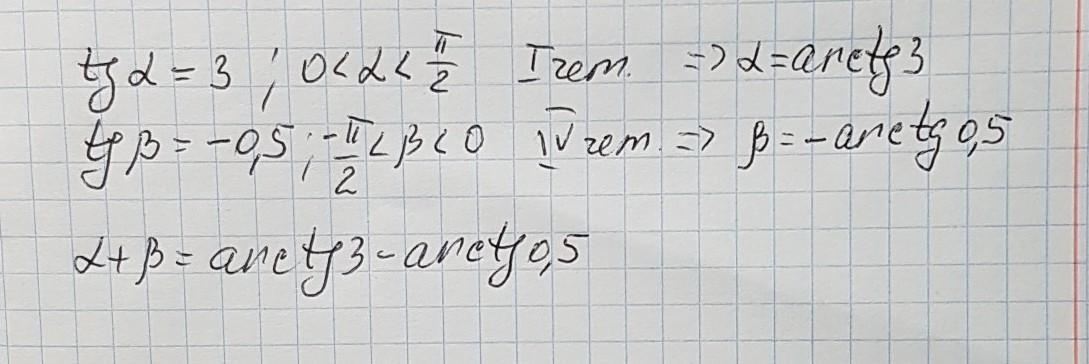 tg α = 3 ; 0 < α < π/2 I чет. => α = arctg 3
tg β = -0,5 ; -π/2 < β < 0 IV чет. => β = -arctg 0,5
α + β = arctg 3 - arctg 0,5